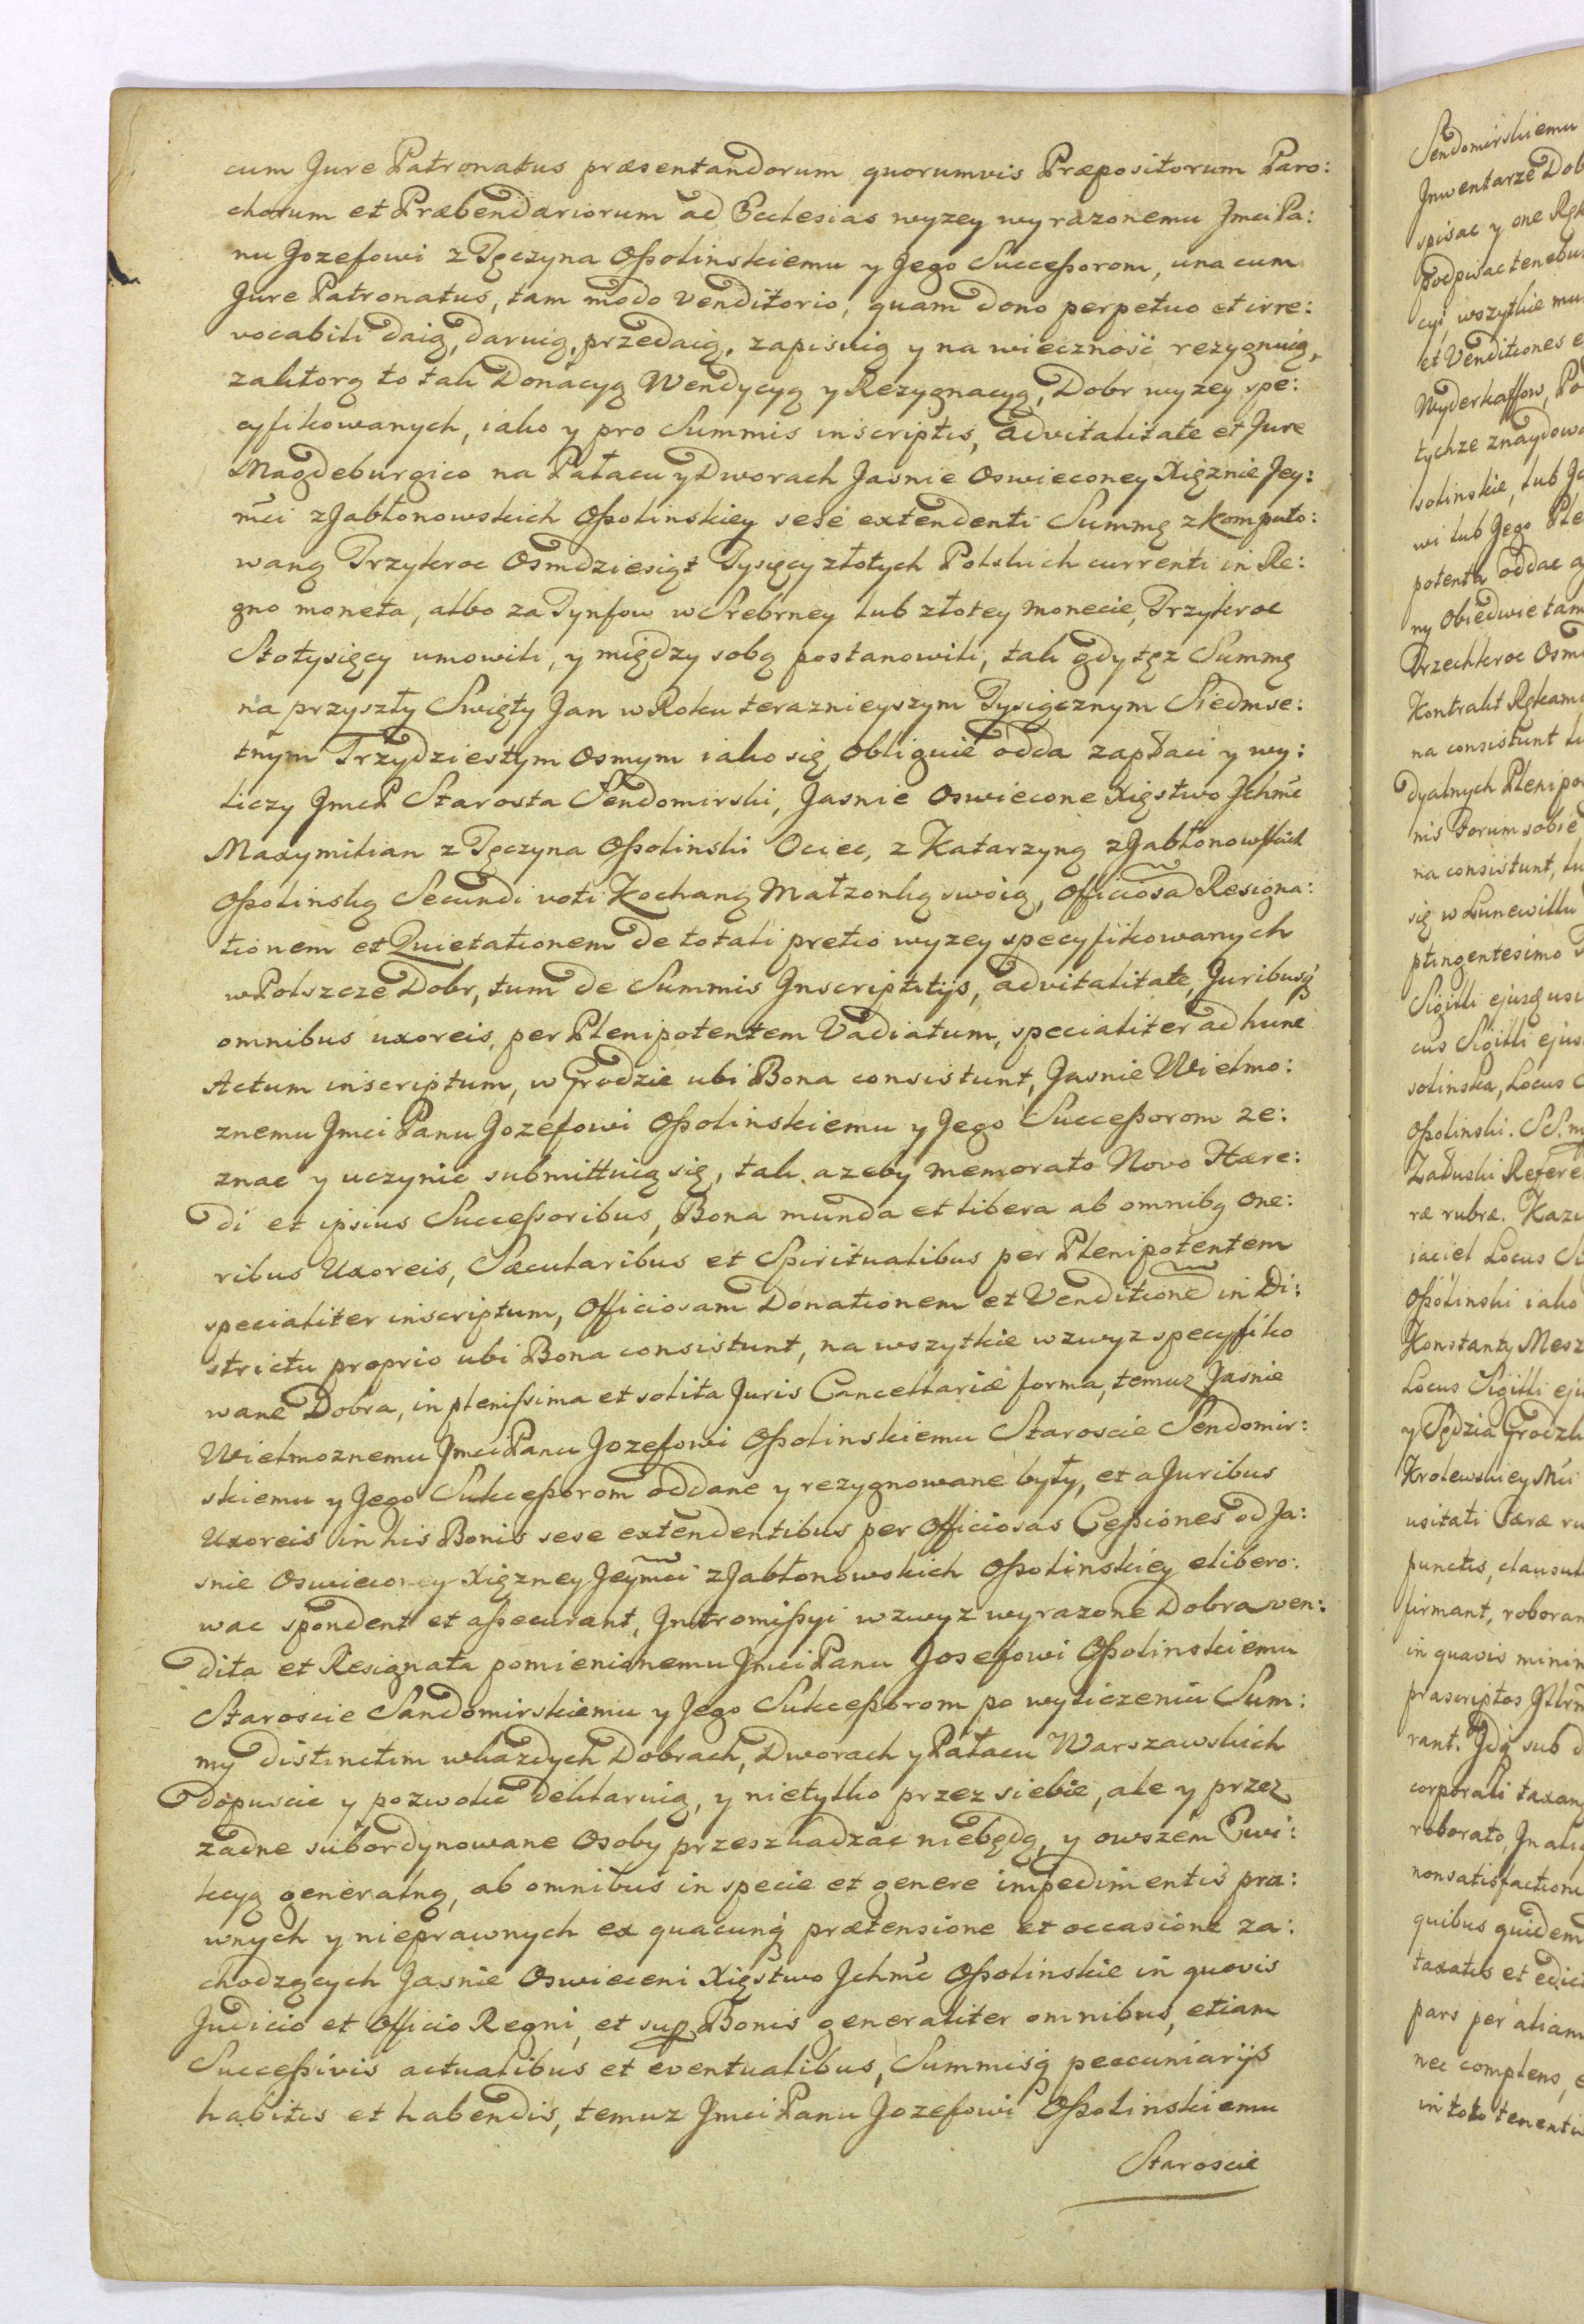 cum Jure Patronatus præsentandorum quorumvis Præpositorum Paro:
chorum et Præbendariorum ad Ecclesias wyzey wyrazonemu Jmci Pa:
nu Jozefowi z Tęczyna Oßolinskiemu y Jego Succeßorom, una cum
Jure Patronatus, tam modo venditorio, quam dono perpetuo et irre:
vocabili daią, daruią, przedaią, zapisuią y na wieczność rezygnuią,
zaktorą to tak Donacyą Wendycyą y Rezygnacyą, Dobr wyzey spe:
cyfikowanych, iako y pro Summis inscriptis, advitalitate et Jure
Magdeburgico na Pałacu y Dworach Jasnie Oswieconey Xięznie Jey:
mci z Jabłonowskich Oßolinskiey sese extendenti Summę z komputo:
waną Trzykroc Osmdziesiąt Tysięcy złotych Polskich currenti in Re:
gno moneta, albo za Tynfow w Srebrney lub złotey monecie, Trzykroc
Stotysięcy umowili, y między sobą postanowili, tak gdy tęz Summę
na przyszły Swięty Jan w Roku teraznieyszym Tysiącznym Siedmse:
tnym Trzydziestym Osmym iako się obliguie odda zapłaci y wy:
liczy JmcP Starosta Sendomirski, Jasnie Oswiecone Xięstwo Jchmć
Maxymilian z Tęczyna Oßolinski Ociec, z Katarzyną z Jabłonowskich
Oßolinską Secundi voti Kochaną Małzonką swoią, Officiosa Resigna:
tionem et Quietationem de totali pretio wyzey specyfikowanych
w Polszcze Dobr, tum de Summis Inscriptitijs, advitalitate, Juribusq
omnibus uxoreis, per Plenipotentem Vadiatum, specialiter ad hunc
Actum inscriptum, w Grodzie ubi Bona consistunt, Jasnie Wielmo:
znemu Jmci Panu Jozefowi Oßolinskiemu y Jego Succeßorom ze:
znac y uczynic submittuią się, tak azeby memorato Novo Hære:
di et ipsius Succeßoribus, Bona munda et libera ab omnibq One:
ribus Uxoreis, Sæcularibus et Spiritualibus per Plenipotentem
specialiter inscriptum, Officiosam Donationem et Venditione in Di:
strictu proprio ubi Bona consistunt, na wszytkie wzwyz specyfiko
wane Dobra, in plenißima et solita Juris Cancellariæ forma, temuz Jasnie
Wielmoznemu Jmci Panu Jozefowi Oßolinskiemu Staroscie Sendomir:
skiemu y Jego Sukceßorom oddane y rezygnowane były, et a Juribus
Uxoreis in his Bonis sese extendentibus per Officiosas Ceßiones od Ja:
snie Oswieconey Xięzney Jeymci z Jabłonowskich Oßolinskiey elibero:
wac spondent et aßecurant, Intromißyi wzwyz wyrazone Dobra ven:
dita et Resignata pomienionemu Jmci Panu Josefowi Oßolinskiemu
Staroscie Sandomirskiemu y Jego Sukceßorom po wyliczeniu Sum:
my distinctim wkazdych Dobrach, Dworach y Pałacu Warszawskich
dopuscic y pozwolic deklaruią, y nietylko przez siebie, ale y przez
zadne subordynowane Osoby przeszkadzac niebędą, y owszem Ewi:
kcyą generalną, ab omnibus in specie et genere impedimentis pra:
wnych y nieprawnych ex quacunq prætensione et occasione za:
chodzących Jasnie Oswieceni Xięstwo Jchmć Oßolinskie in quovis
Judicio et Officio Regni, et sup Bonis generaliter omnibus, etiam
Succeßivis actualibus et eventualibus, Summisq peccuniarijs
habitis et habendis, temuz Jmci Panu Jozefowi Oßolinskiemu
Staroscie
Sendomirskiemu
Jnwentarze Dob
spisac y one Ręk
Podpisac tenebu
cyi wszytkie mu
et Venditiones e
Wyderkaffow, Po
tychze znaydow
solinskie, lub Je
wi lub Jego Ple
potenta oddac
ny Obiedwie tam
Trzechkroc Osm
Kontrakt Rękam
na consistunt
dyalnych Plenipo
nis Forum sobie
na consistunt, lu
się w Lunewillu
ptingentesimo
Sigilli ejusq usi
cus Sigilli ejus
solinska, Locus
Oßolinski. SS. m
Załuski Refere
ræ rubræ. Kazi
iaciel Locus Si
Oßolinski iako
Konstanty Mesz
Locus Sigilli eju
y Sędzia Grodzk
Krolewskiey Mci
usitati Cæræ ru
punctis, clausul
firmant, roboran
in quavis minim
præscriptos
rant. Jdq sub
corporali taxan
roborato, In aliq
nonsatisfactione
quibus quidem
taxatis et edic
pars per aliam
nec complens, e
in toto tenentu